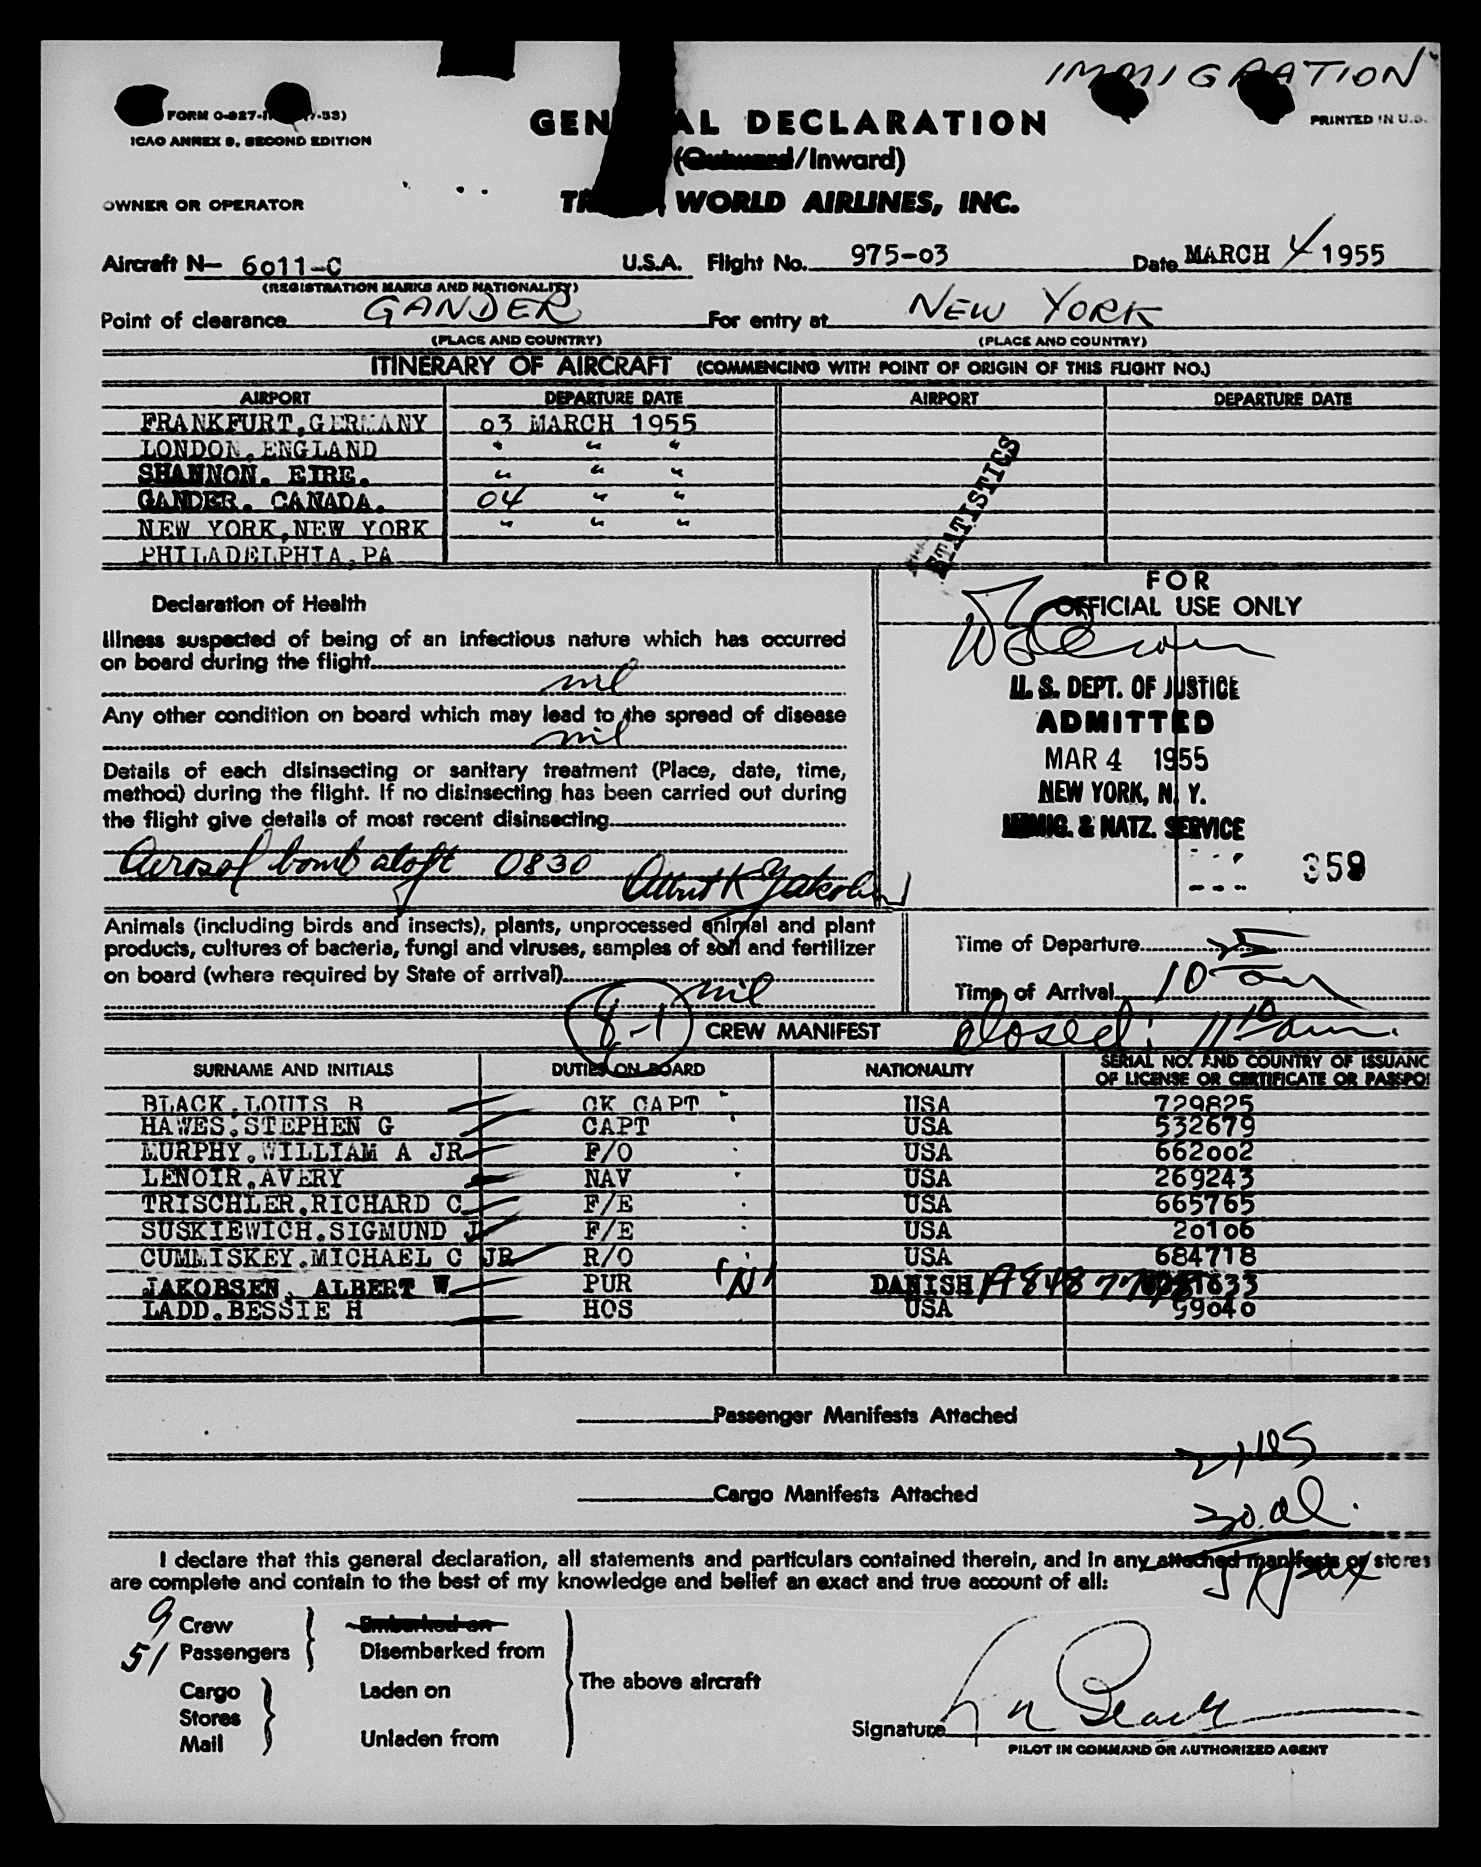 IMMIGRATION
FORM O-827
PRINTED IN U.S.
ICAO ANNEX 9, SECOND EDITION
GENERAL DECLARATION
(Outward/Inward)
OWNER OR OPERATOR
TRANS WORLD AIRLINES, INC.
Aircraft N- 6011-C U.S.A. Flight No. 975-03 Date MARCH 4 1955
(REGISTRATION MARKS AND NATIONALITY)
Point of clearance GANDER For entry at NEW YORK
(PLACE AND COUNTRY) (PLACE AND COUNTRY)
ITINERARY OF AIRCRAFT (COMMENCING WITH POINT OF ORIGIN OF THIS FLIGHT NO.)
AIRPORT DEPARTURE DATE AIRPORT DEPARTURE DATE
FRANKFURT,GERMANY 03 MARCH 1955
LONDON,ENGLAND " " "
SHANNON. EIRE. " " "
GANDER. CANADA. 04 " "
NEW YORK,NEW YORK " " "
PHILADELPHIA,PA
STATISTICS
FOR
OFFICIAL USE ONLY
Declaration of Health
Illness suspected of being of an infectious nature which has occurred
on board during the flight
nil
Any other condition on board which may lead to the spread of disease
nil
Details of each disinsecting or sanitary treatment (Place, date, time,
method) during the flight. If no disinsecting has been carried out during
the flight give details of most recent disinsecting
Aerosol bomb aloft 0830
U. S. DEPT. OF JUSTICE
ADMITTED
MAR 4 1955
NEW YORK, N. Y.
IMMIG. & NATZ. SERVICE
359
Animals (including birds and insects), plants, unprocessed animal and plant
products, cultures of bacteria, fungi and viruses, samples of soil and fertilizer
on board (where required by State of arrival)
nil
Time of Departure
Time of Arrival 10 25 am
8-1 CREW MANIFEST closed: 11 10 am.
SURNAME AND INITIALS DUTIES ON BOARD NATIONALITY SERIAL NO. AND COUNTRY OF ISSUANC
OF LICENSE OR CERTIFICATE OR PASSPO
BLACK,LOUIS R CK CAPT USA 729825
HAWES.STEPHEN G CAPT USA 532679
MURPHY.WILLIAM A JR F/O USA 662002
LENOIR.AVERY NAV USA 269243
TRISCHLER.RICHARD C F/E USA 665765
SUSKIEWICH.SIGMUND J F/E USA 20106
CUMMISKEY.MICHAEL C JR R/O USA 684718
JAKOBSEN, ALBERT W PUR "N" DANISH
LADD.BESSIE H HOS USA 99040
Passenger Manifests Attached
Cargo Manifests Attached
I declare that this general declaration, all statements and particulars contained therein, and in any attached manifests or stores
are complete and contain to the best of my knowledge and belief an exact and true account of all:
9 Crew Embarked on
51 Passengers Disembarked from
The above aircraft
Cargo Laden on
Stores
Mail Unladen from
Signature
PILOT IN COMMAND OR AUTHORIZED AGENT